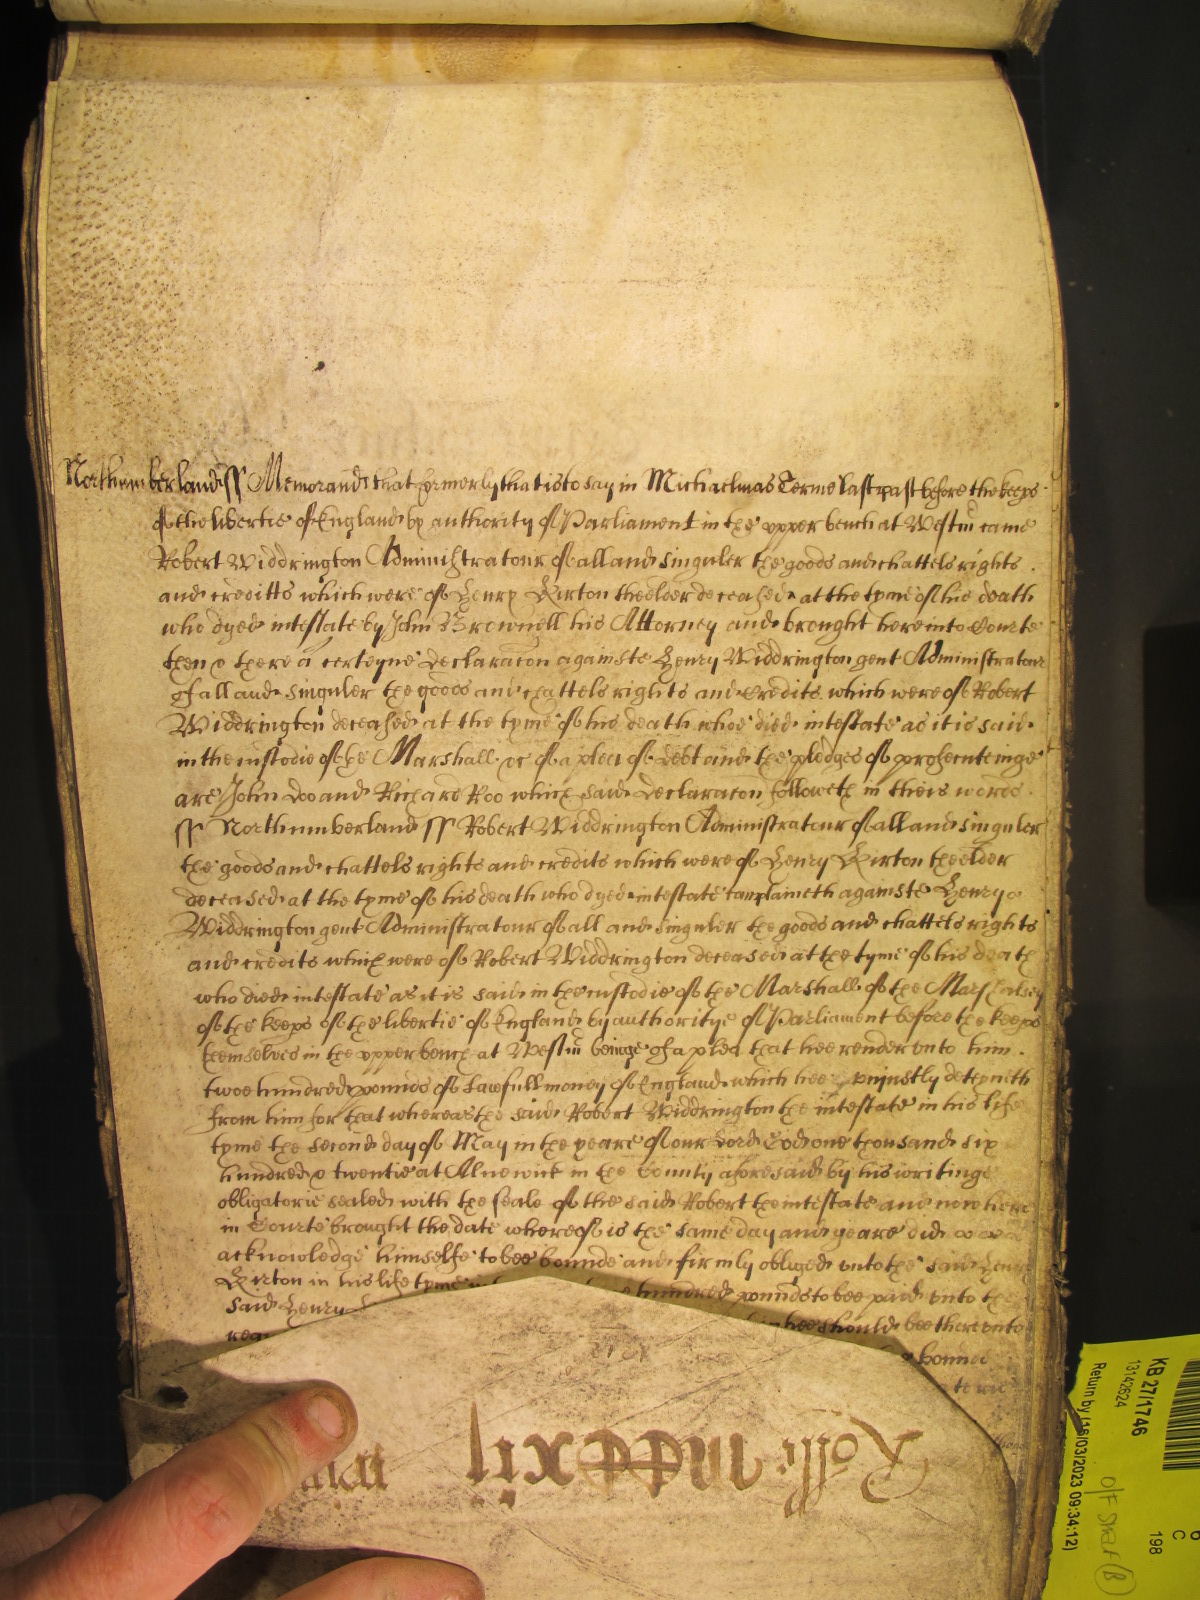 Northumberland ss Memorand that formerly that is to say in Michaelmas Terme last past before the keeps
of the libertie of England by authority of Parliament in the upper bench at Westm̃ came
Robert Widdrington Administratour of all and singuler the goods and chattels rights
and creditts which were of Henry Kirton the elder deceased at the tyme of his death
who dyed intestate by John Brownell his Attorney and brought here into Courte
then & there a certeyne declaracon againste Henry Widdrington gent Administratour
of all and singuler the goods and chattels rights and Credits which were of Robert
Widdrington deceased at the tyme of his death whoe died intestate as it is said
in the custodie of the Marshall &c of a plea of debt and the pledges of prosecuteinge
are John Doo and Richard Roo which said declaracon followeth in theis words
ss Northumberland ss Robert Widdrington Administratour of all and singuler
the goods and chattels rights and credits which were of Henry Kirton the elder
deceased at the tyme of his death who dyed intestate complaineth againste Henry
Widdrington gent Administratour of all and singuler the goods and chattels rights
and credits which were of Robert Widdrington deceased at the tyme of his death
who died intestate as it is said in the custodie of the Marshall of the Marshalsey
of the keeps of the libertie of England by authoritye of Parliament before the keeps
themselves in the upper bench at Westm̃ beinge of a plea that hee render unto him
twoe hundred pounds of lawfull money of England which hee uniustly deteyneth
from him for that whereas the said Robert Widdrington the intestate in his life
tyme the second day of May in the yeare of our Lord God one thousand six
hundred & twentie at Alnewick in the County aforesaid by his writinge
obligatorie sealed with the seale of the said Robert the intestate and now here
in Courte brought the date whereof is the same day and yeare did
acknowledge himselfe to bee bounde and firmly obliged unto the said Henry
Kirton in his life tyme in hundred pounds to bee paid unto the
said Henry
hee should bee thereunto
bound
Rotli
KB 27/1746
13142624
Return by (18/03/2023 09:34:12)
C
198